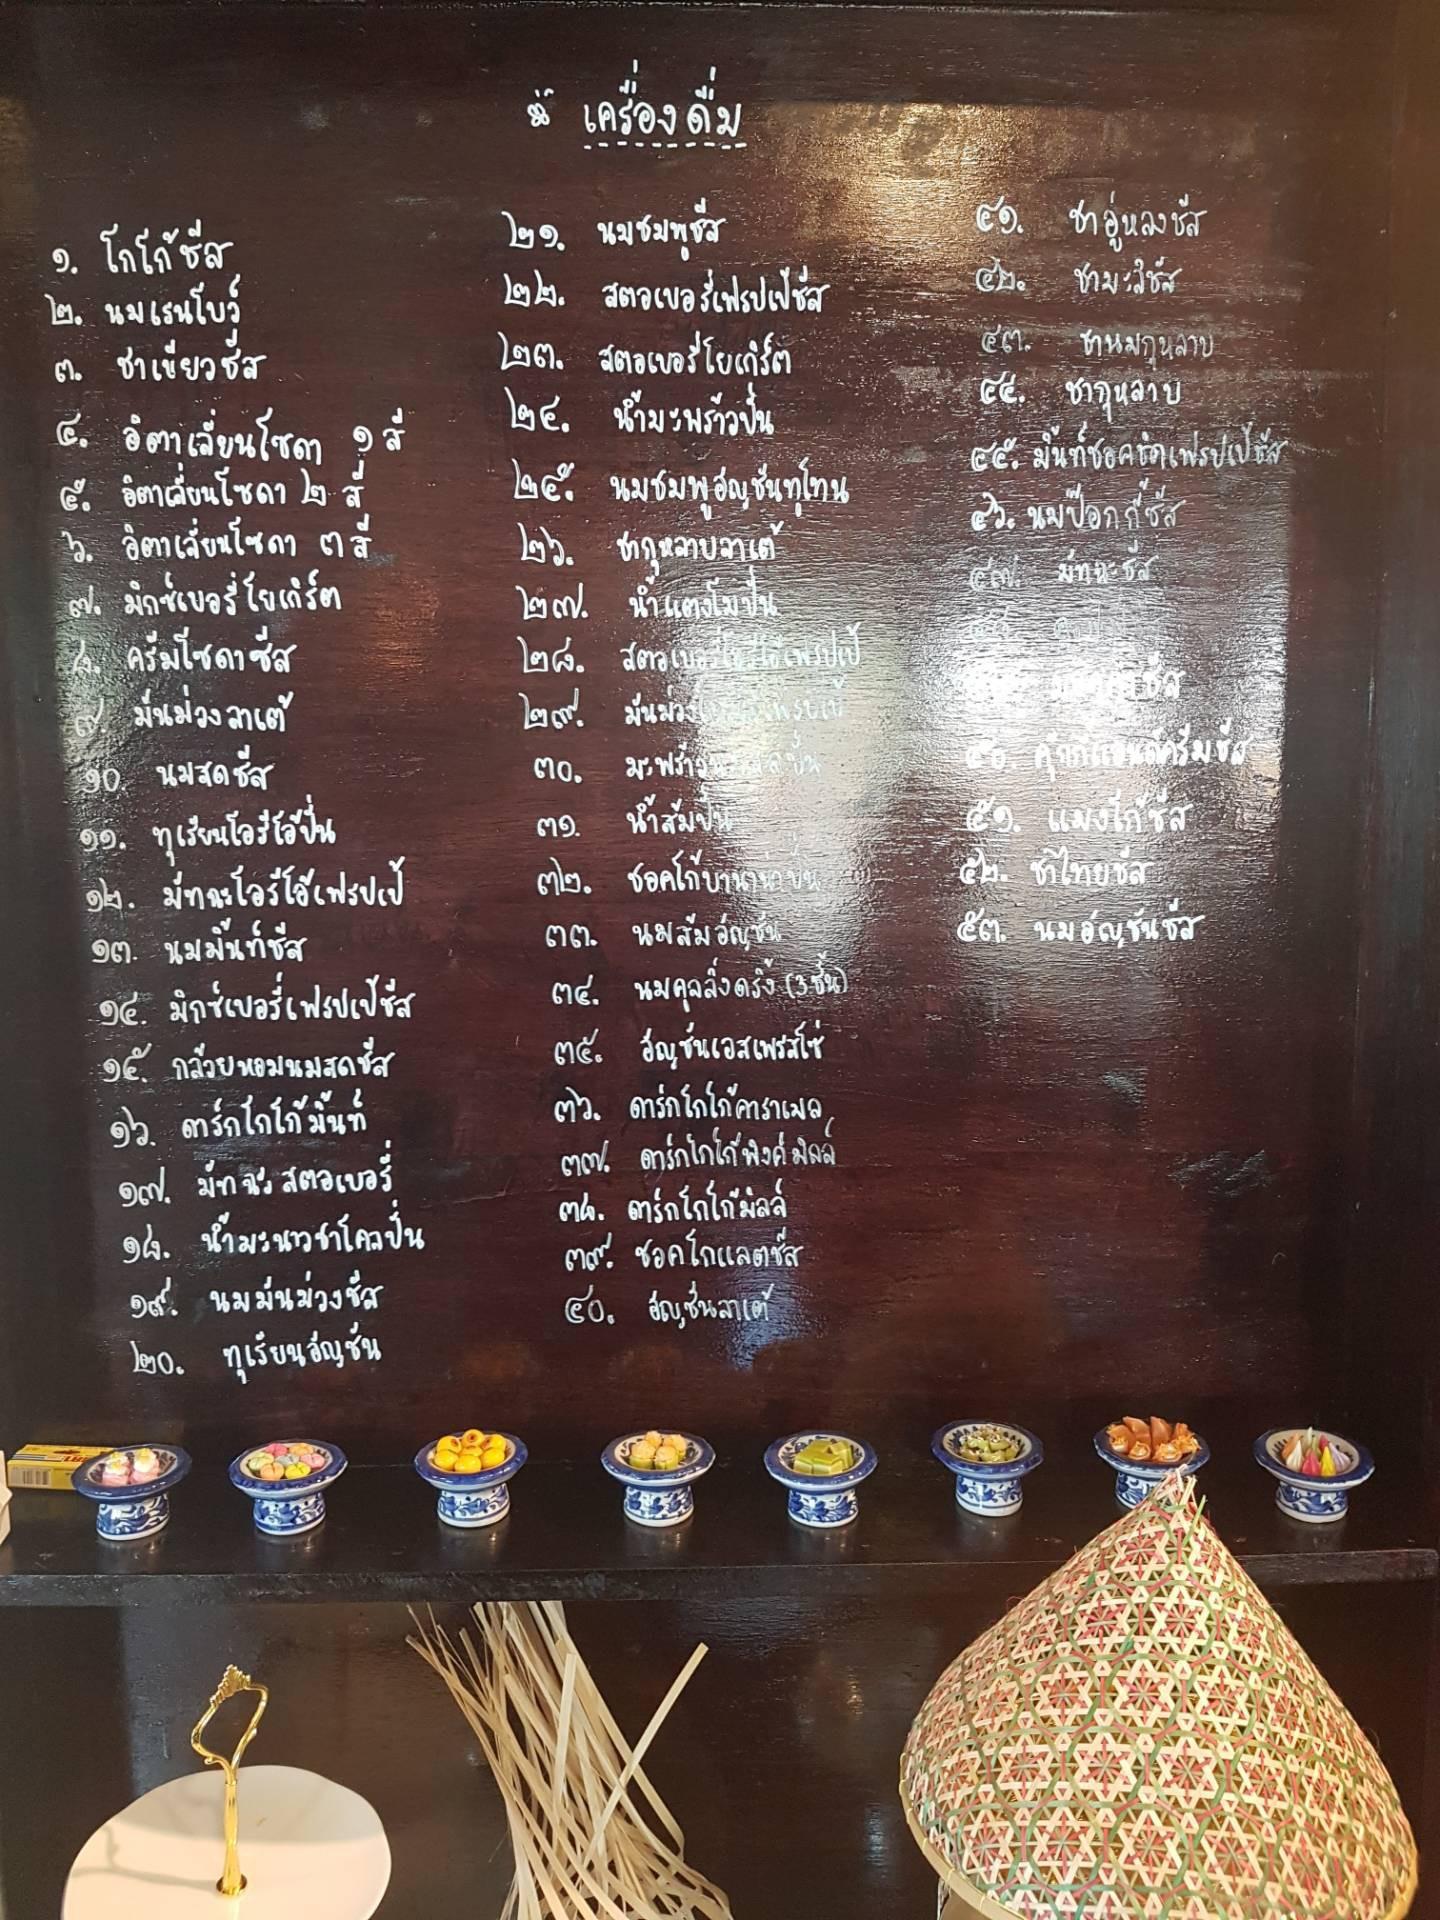 เครื่องดื่ม
๑. โกโก้ชีส
๒. นมเรนโบว์
๓. ชาเขียวชีส
๔. อิตาเลี่ยนโซดา ๑ สี
๕. อิตาเลี่ยนโซดา ๒ สี
๖. อิตาเลี่ยนโซดา ๓ สี
๗. มิกซ์เบอรี่โยเกิร์ต
๘. ครีมโซดาชีส
๙. มันม่วงลาเต้
๑๐. นมสดชีส
๑๑. ทุเรียนโอรีโอ้ปั่น
๑๒. มัทฉะโอรีโอ้เฟรปเป้
๑๓. นมมิ้นท์ชีส
๑๔. มิกซ์เบอรี่เฟรปเป้ชีส
๑๕. กล้วยหอมนมสดชีส
๑๖. ดาร์กโกโก้มิ้นท์
๑๗. มัทฉะสตอเบอรี่
๑๘. น้ำมะนาวชาโคลปั่น
๑๙. นมมันม่วงชีส
๒๐. ทุเรียนอัญชัน
๒๑. นมชมพูชีส
๒๒. สตอเบอรี่เฟรปเป้ชีส
๒๓. สตอเบอรี่โยเกิร์ต
๒๔. น้ำมะพร้าวปั่น
๒๕. นมชมพูอัญชันทูโทน
๒๖. ชากุหลาบลาเต้
๒๗. น้ำแตงโมปั่น
๒๘. สตอเบอรี่โอรีโอ้เฟรปเป้
๒๙. มันม่วงโอรีโอ้เฟรปเป้
๓๐. มะพร้าวนมสดปั่น
๓๑. น้ำส้มปั่น
๓๒. ชอคโก้บานาน่าปั่น
๓๓. นมส้มอัญชัน
๓๔. นมคูลลิ่งดริ้ง (3 ชั้น)
๓๕. อัญชันเอสเพรสโซ่
๓๖. ดาร์กโกโก้คาราเมล
๓๗. ดาร์กโกโก้พิงค์มิลล์
๓๘. ดาร์กโกโก้มิลล์
๓๙. ชอคโกแลตชีส
๔๐. อัญชันลาเต้
๔๑. ชาอู่หลงชีส
๔๒. ชามะลิชีส
๔๓. ชานมกุหลาบ
๔๔. ชากุหลาบ
๔๕. มิ้นท์ชอคชิดเฟรปเป้ชีส
๔๖. นมป๊อกกี้ชีส
๔๗. มัทฉะชีส
๕๐. คุ้กกี้แอนด์ครีมชีส
๕๑. แมงโก้ชีส
๕๒. ชาไทยชีส
๕๓. นมอัญชันชีส